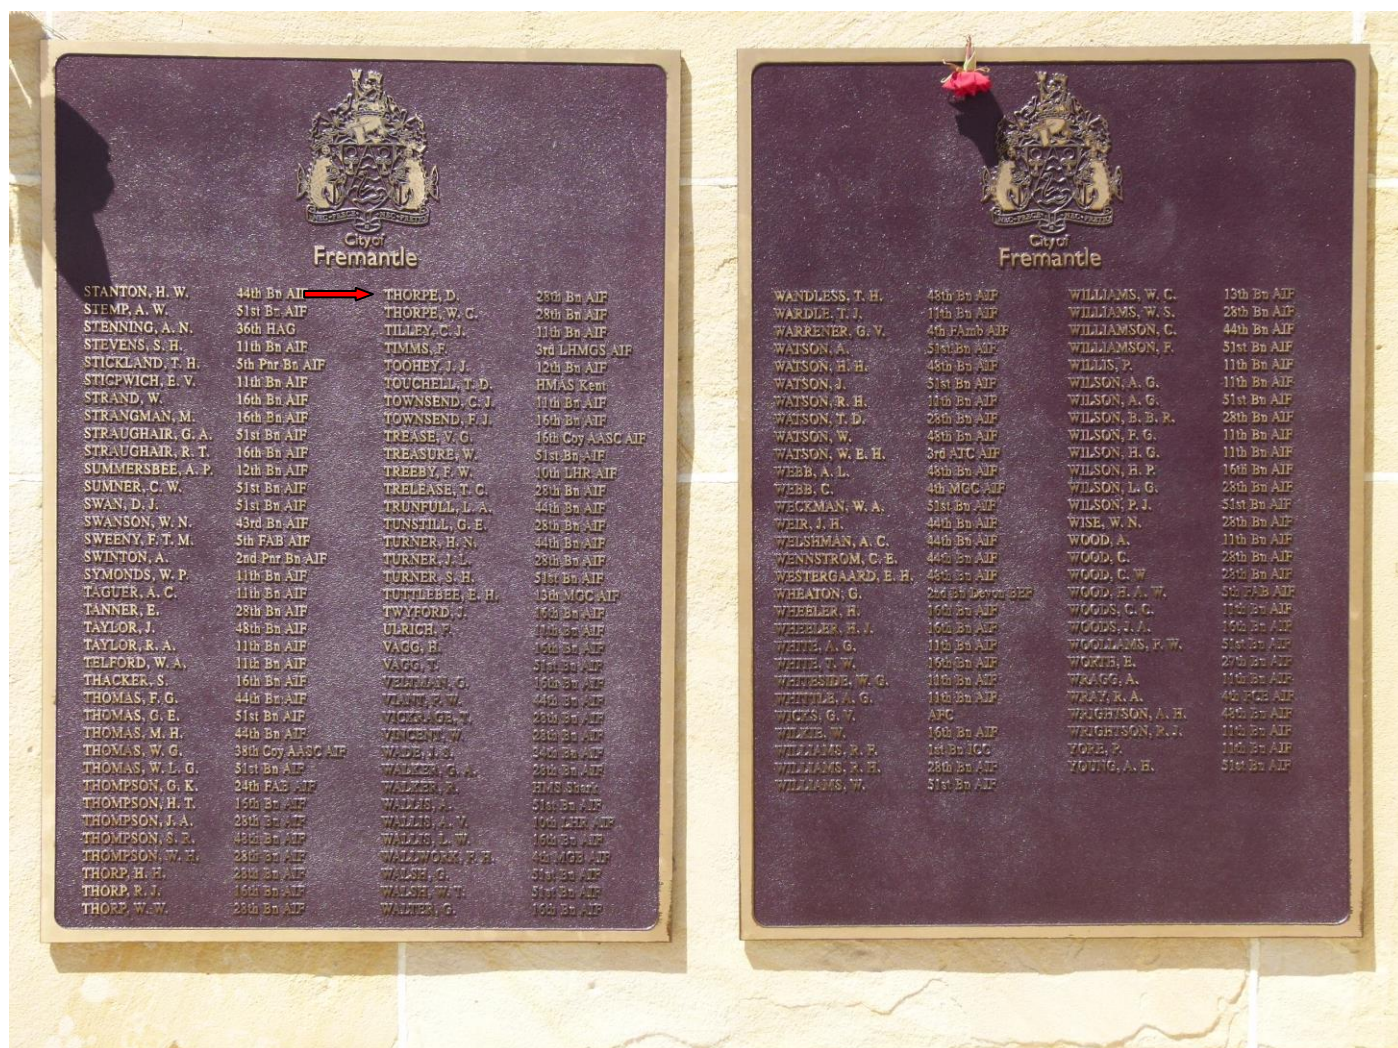 City of
Fremantle
STANTON, H. W. 44th Bn AIF
STEMP, A. W. 51st Bn AIF
STENNING, A. N. 36th HAG
STEVENS, S. H. 11th Bn AIF
STICKLAND, T. H. 5th Pnr Bn AIF
STICPWICH, E. V. 11th Bn AIF
STRAND, W. 16th Bn AIF
STRANGMAN, M. 16th Bn AIF
STRAUGHAIR, G. A. 51st Bn AIF
STRAUGHAIR, R. T. 16th Bn AIF
SUMMERSBEE, A. P. 12th Bn AIF
SUMNER, C. W. 51st Bn AIF
SWAN, D. J. 51st Bn AIF
SWANSON, W. N. 43rd Bn AIF
SWEENY, F. T. M. 5th FAB AIF
SWINTON, A. 2nd Pnr Bn AIF
SYMONDS, W. P. 11th Bn AIF
TAGUER, A. C. 11th Bn AIF
TANNER, E. 28th Bn AIF
TAYLOR, J. 48th Bn AIF
TAYLOR, R. A. 11th Bn AIF
TELFORD, W. A. 11th Bn AIF
THACKER, S. 16th Bn AIF
THOMAS, F. G. 44th Bn AIF
THOMAS, G. E. 51st Bn AIF
THOMAS, M. H. 44th Bn AIF
THOMAS, W. G. 38th Coy AASC AIF
THOMAS, W. L. G. 51st Bn AIF
THOMPSON, G. K. 24th FAB AIF
THOMPSON, H. T. 16th Bn AIF
THOMPSON, J. A. 28th Bn AIF
THOMPSON, S. R. 48th Bn AIF
THOMPSON, W. H. 28th Bn AIF
THORP, H. H. 28th Bn AIF
THORP, R. J. 16th Bn AIF
THORP, W. W. 28th Bn AIF
THORPE, D. 28th Bn AIF
THORPE, W. C. 28th Bn AIF
TILLEY, C. J. 11th Bn AIF
TIMMS, F. 3rd LHMGS AIF
TOOHEY, J. J. 12th Bn AIF
TOUCHELL, T. D. HMAS Kent
TOWNSEND, C. J. 11th Bn AIF
TOWNSEND, F. J. 16th Bn AIF
TREASE, V. G. 16th Coy AASC AIF
TREASURE, W. 51st Bn AIF
TREEBY, F. W. 10th LHR AIF
TRELEASE, T. C. 28th Bn AIF
TRUNFULL, L. A. 44th Bn AIF
TUNSTILL, G. E. 28th Bn AIF
TURNER, H. N. 44th Bn AIF
TURNER, J. L. 28th Bn AIF
TURNER, S. H. 51st Bn AIF
TUTTLEBEE, E. H. 13th MGC AIF
TWYFORD, J. 16th Bn AIF
ULRICH, F. 11th Bn AIF
VAGG, H. 16th Bn AIF
VAGG, T. 51st Bn AIF
VELTMAN, G. 16th Bn AIF
VIANT, P. W. 44th Bn AIF
VICKRAGE, T. 28th Bn AIF
VINCENT, W. 28th Bn AIF
WADE, J. S. 34th Bn AIF
WALKER, G. A. 28th Bn AIF
WALKER, R. HMS Shark
WALLIS, A. 51st Bn AIF
WALLIS, A. V. 10th LHR AIF
WALLIS, L. W. 16th Bn AIF
WALLWORK, F. H. 4th MGB AIF
WALSH, G. 51st Bn AIF
WALSH, W. T. 51st Bn AIF
WALTER, G. 16th Bn AIF
City of
Fremantle
WANDLESS, T. H. 48th Bn AIF
WARDLE, T. J. 11th Bn AIF
WARRENER, G. V. 4th FAmb AIF
WATSON, A. 51st Bn AIF
WATSON, H. H. 48th Bn AIF
WATSON, J. 51st Bn AIF
WATSON, R. H. 11th Bn AIF
WATSON, T. D. 28th Bn AIF
WATSON, W. 48th Bn AIF
WATSON, W. E. H. 3rd ATC AIF
WEBB, A. L. 48th Bn AIF
WEBB, C. 4th MGC AIF
WECKMAN, W. A. 51st Bn AIF
WEIR, J. H. 44th Bn AIF
WELSHMAN, A. C. 44th Bn AIF
WENNSTROM, C. E. 44th Bn AIF
WESTERGAARD, E. H. 48th Bn AIF
WHEATON, G. 2nd Bn Devon BEF
WHEELER, H. 16th Bn AIF
WHEELER, H. J. 16th Bn AIF
WHITE, A. G. 11th Bn AIF
WHITE, T. W. 16th Bn AIF
WHITESIDE, W. G. 11th Bn AIF
WHITTLE, A. G. 11th Bn AIF
WICKS, G. V. AFC
WILKIE, W. 16th Bn AIF
WILLIAMS, R. P. 1st Bn ICC
WILLIAMS, R. H. 28th Bn AIF
WILLIAMS, W. 51st Bn AIF
WILLIAMS, W. C. 13th Bn AIF
WILLIAMS, W. S. 28th Bn AIF
WILLIAMSON, C. 44th Bn AIF
WILLIAMSON, F. 51st Bn AIF
WILLIS, P. 11th Bn AIF
WILSON, A. G. 11th Bn AIF
WILSON, A. G. 51st Bn AIF
WILSON, B. B. R. 28th Bn AIF
WILSON, F. G. 11th Bn AIF
WILSON, H. G. 11th Bn AIF
WILSON, H. P. 16th Bn AIF
WILSON, L. G. 28th Bn AIF
WILSON, P. J. 51st Bn AIF
WISE, W. N. 28th Bn AIF
WOOD, A. 11th Bn AIF
WOOD, C. 28th Bn AIF
WOOD, C. W 28th Bn AIF
WOOD, H. A. W. 5th FAB AIF
WOODS, C. C. 11th Bn AIF
WOODS, J. A. 16th Bn AIF
WOOLLAMS, P. W. 51st Bn AIF
WORTH, E. 27th Bn AIF
WRAGG, A. 11th Bn AIF
WRAY, R. A. 4th FCE AIF
WRIGHTSON, A. H. 48th Bn AIF
WRIGHTSON, R. J. 11th Bn AIF
YORE, P. 11th Bn AIF
YOUNG, A. H. 51st Bn AIF